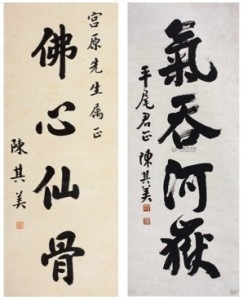 氣吞河嶽
平尾君正 陳其美
宮原先生属正
佛心仙骨
陳其美